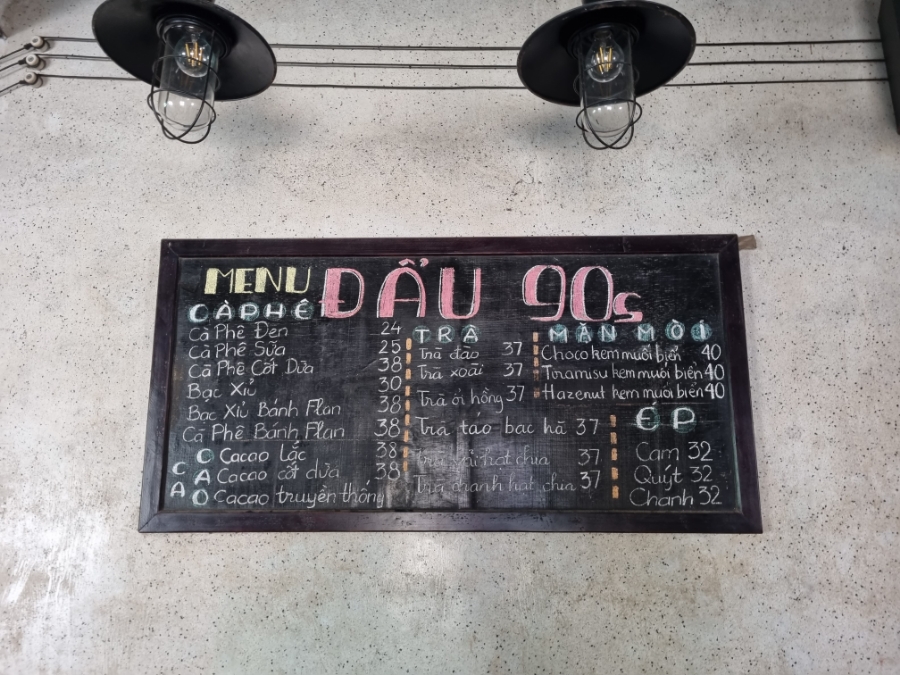 MENU ĐẨU 90s
CÀ PHÊ
Cà Phê Đen 24
Cà Phê Sữa 25
Cà Phê Cốt Dừa 38
Bạc Xỉu 30
Bạc Xỉu Bánh Flan 38
Cà Phê Bánh Flan 38
CACAO
Cacao Lắc 38
Cacao cốt dừa 38
Cacao truyền thống
TRÀ
Trà đào 37
Trà xoài 37
Trà ổi hồng 37
Trà táo bạc hà 37
Trà vải hạt chia 37
Trà chanh hạt chia 37
MẶN MÒI
Choco kem muối biển 40
Tiramisu kem muối biển 40
Hazenut kem muối biển 40
ÉP
Cam 32
Quýt 32
Chanh 32